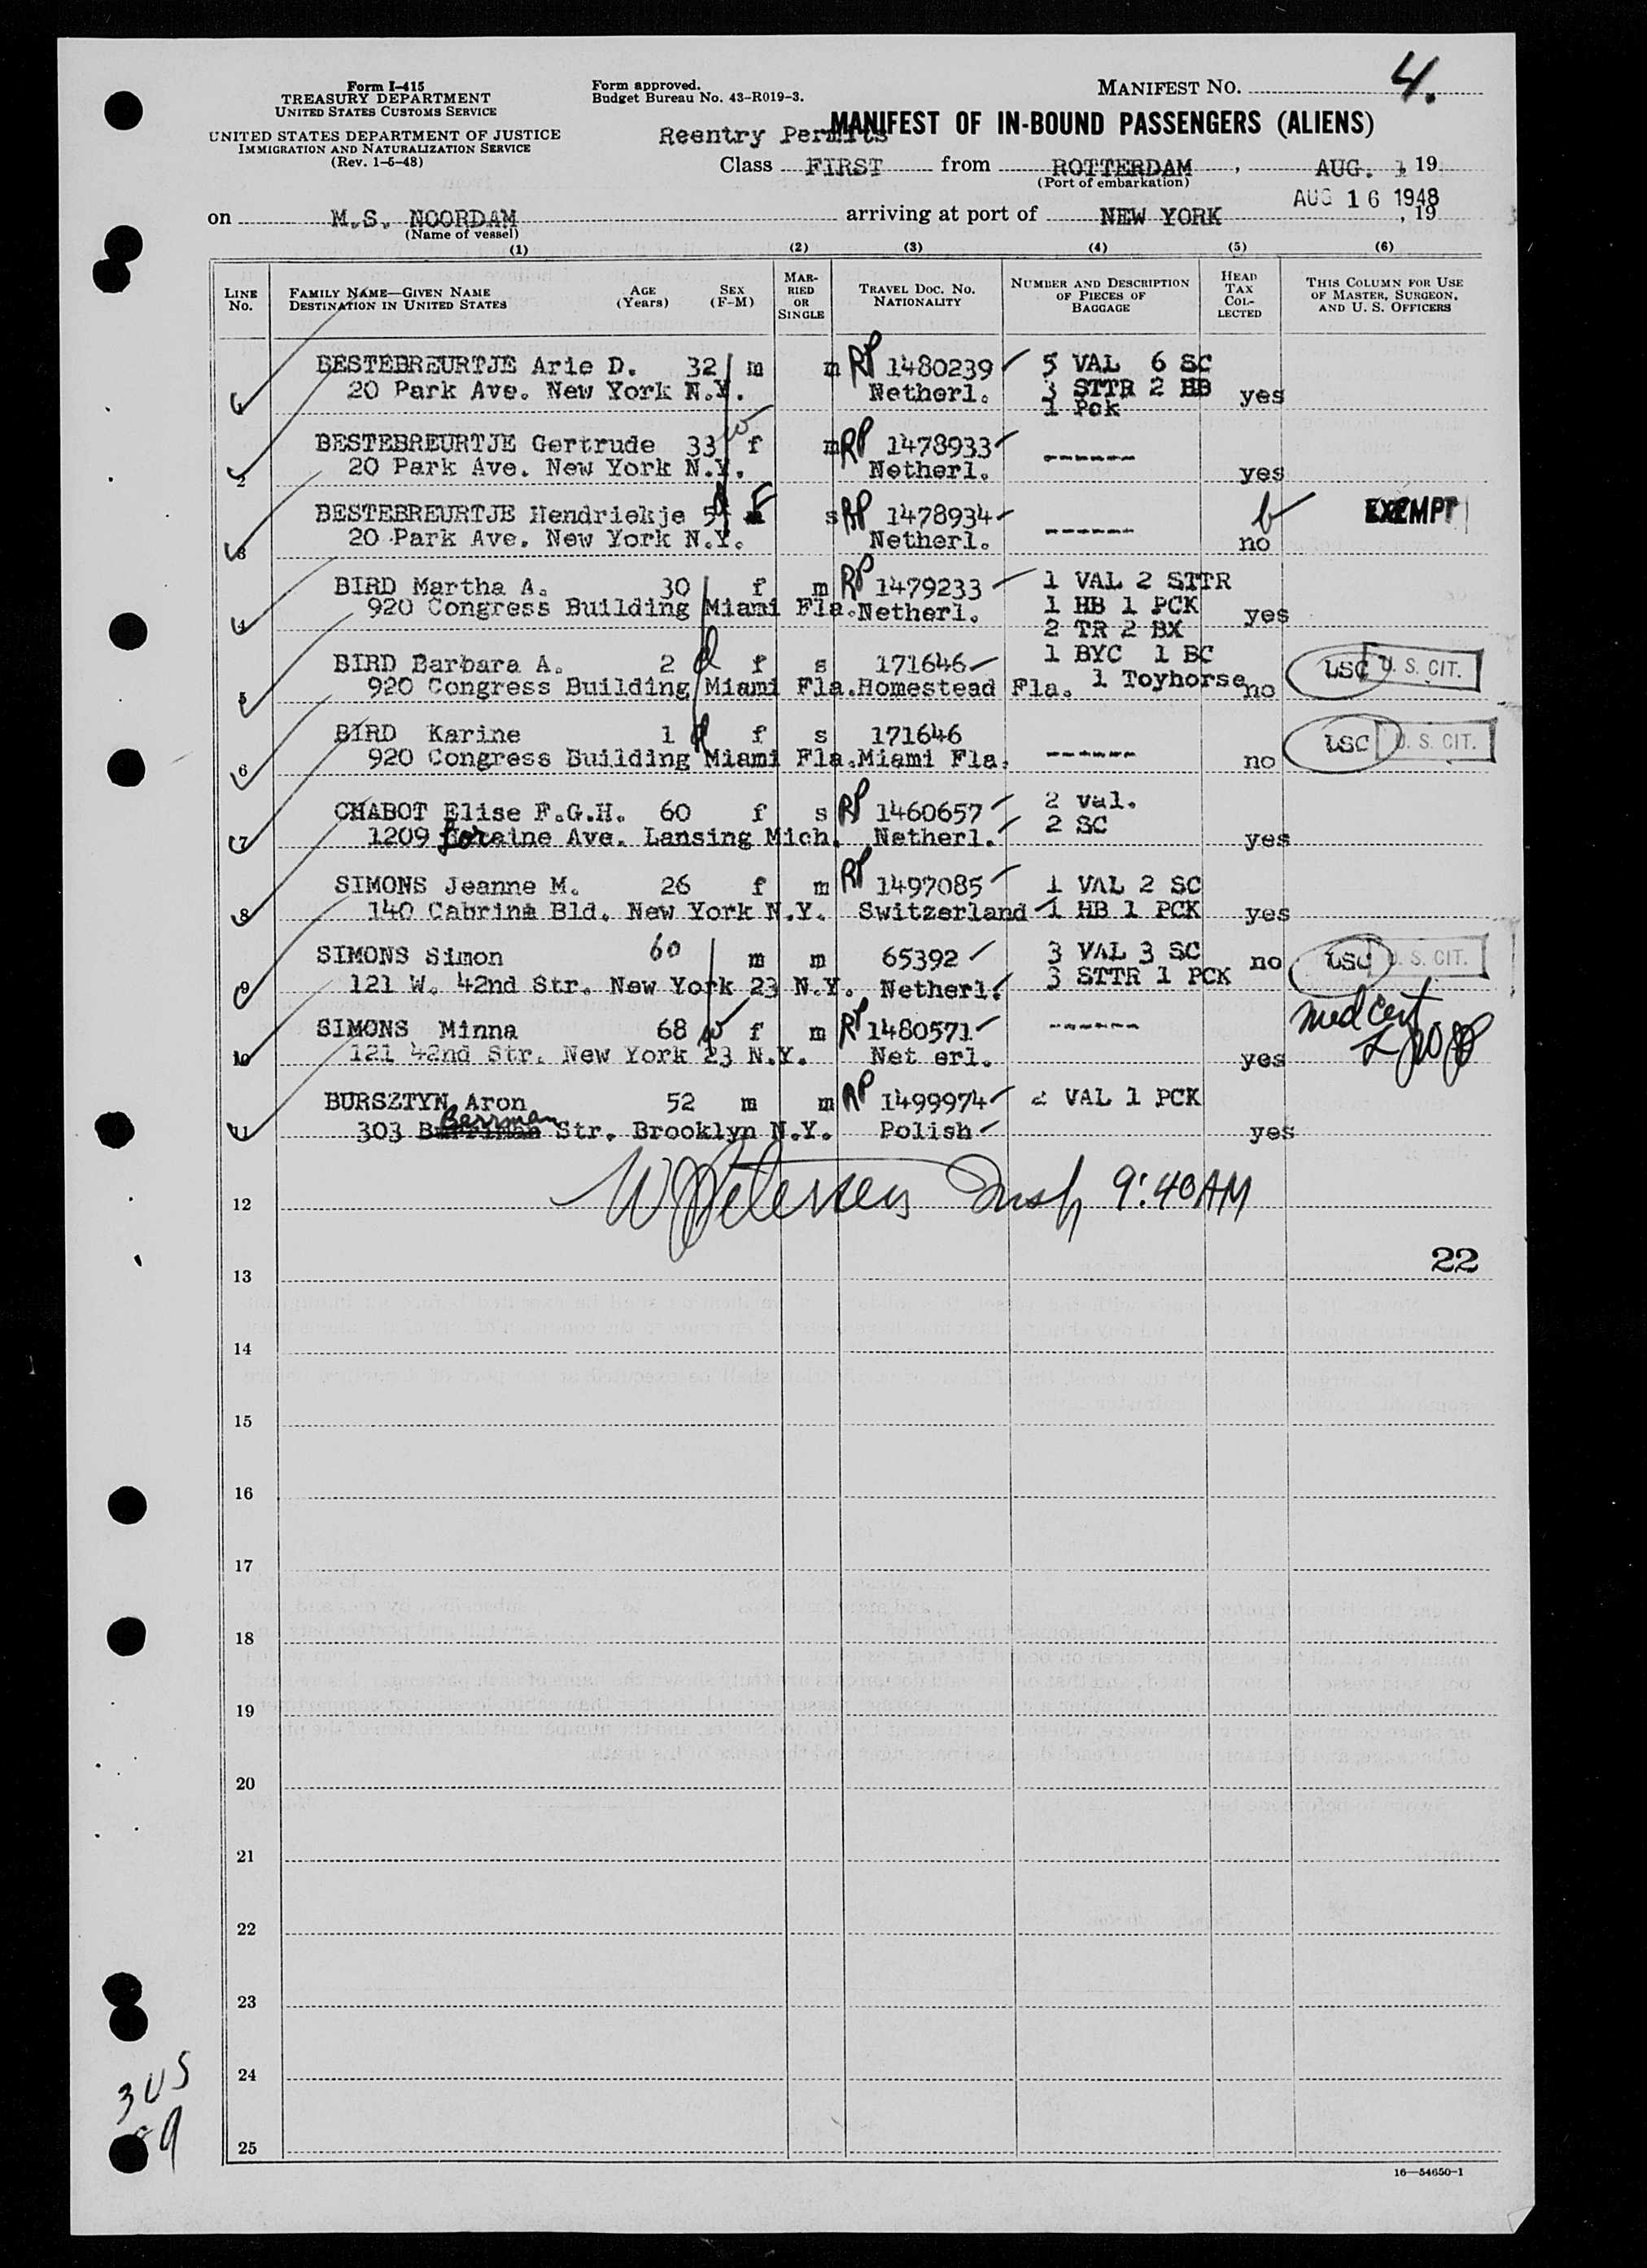 Form I-415
TREASURY DEPARTMENT
UNITED STATES CUSTOMS SERVICE
UNITED STATES DEPARTMENT OF JUSTICE
IMMIGRATION AND NATURALIZATION SERVICE
(Rev. 1-5-48)
Form approved.
Budget Bureau No. 43-R019-3.
MANIFEST NO. 4.
MANIFEST OF IN-BOUND PASSENGERS (ALIENS)
Reentry Permits
Class FIRST from ROTTERDAM, AUG. 19
(Port of embarkation)
AUG 16 1948
on M.S. NOORDAM arriving at port of NEW YORK, 19
(Name of vessel)
(1) (2) (3) (4) (5) (6)
LINE No. FAMILY NAME—GIVEN NAME DESTINATION IN UNITED STATES AGE (Years) SEX (F-M) MARRIED OR SINGLE TRAVEL DOC. NO. NATIONALITY NUMBER AND DESCRIPTION OF PIECES OF BAGGAGE HEAD TAX COLLECTED THIS COLUMN FOR USE OF MASTER, SURGEON, AND U. S. OFFICERS
BESTEBREURTJE Arie D. 32 m m RP 1480239 5 VAL 6 SC
20 Park Ave. New York N.Y. Netherl. 3 STTR 2 HB yes
1 Pck
BESTEBREURTJE Gertrude 33 w f m RP 1478933 ------
2 20 Park Ave. New York N.Y. Netherl. yes
BESTEBREURTJE Hendriekje 5 d F s RP 1478934 ------ EXEMPT
3 20 Park Ave. New York N.Y. Netherl. no
BIRD Martha A. 30 f m RP 1479233 1 VAL 2 STTR
4 920 Congress Building Miami Fla. Netherl. 1 HB 1 PCK yes
2 TR 2 BX
BIRD Barbara A. 2 d f s 171646 1 BYC 1 BC LSC U. S. CIT.
5 920 Congress Building Miami Fla. Homestead Fla. 1 Toyhorse no
BIRD Karine 1 d f s 171646 LSC U. S. CIT.
6 920 Congress Building Miami Fla. Miami Fla. ------ no
CHABOT Elise F.G.H. 60 f s RP 1460657 2 val.
7 1209 Loraine Ave. Lansing Mich. Netherl. 2 SC yes
SIMONS Jeanne M. 26 f m RP 1497085 1 VAL 2 SC
8 140 Cabrina Bld. New York N.Y. Switzerland 1 HB 1 PCK yes
SIMONS Simon 60 m m 65392 3 VAL 3 SC no LSC U. S. CIT.
9 121 W. 42nd Str. New York 23 N.Y. Netherl. 3 STTR 1 PCK
SIMONS Minna 68 w f m RP 1480571 ------ med cert
10 121 42nd Str. New York 23 N.Y. Net erl. yes
BURSZTYN Aron 52 m m RP 1499974 2 VAL 1 PCK
11 303 Berriman Str. Brooklyn N.Y. Polish yes
12 Insp 9:40 AM
22
13
14
15
16
17
18
19
20
21
22
23
24
25
3 US
16—54650-1